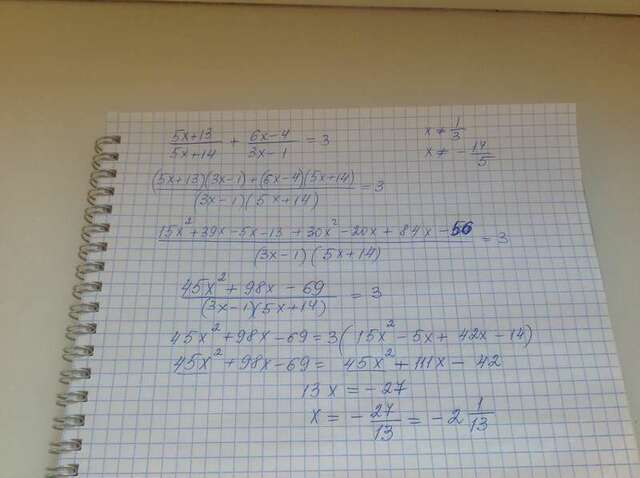 (5x+13)/(5x+14) + (6x-4)/(3x-1) = 3    x ≠ 1/3
x ≠ -14/5
((5x+13)(3x-1)+(6x-4)(5x+14))/((3x-1)(5x+14)) = 3
(15x²+39x-5x-13+30x²-20x+84x-56)/((3x-1)(5x+14)) = 3
(45x²+98x-69)/((3x-1)(5x+14)) = 3
45x²+98x-69=3(15x²-5x+42x-14)
45x²+98x-69= 45x²+111x-42
13x=-27
x=-27/13=-2 1/13